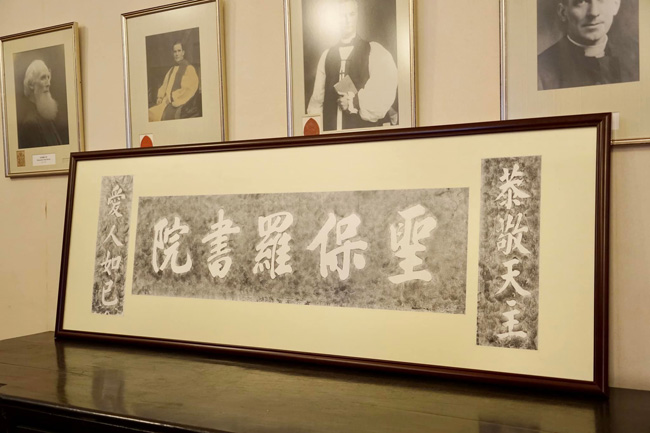 恭敬天主
聖保羅書院
愛人如己